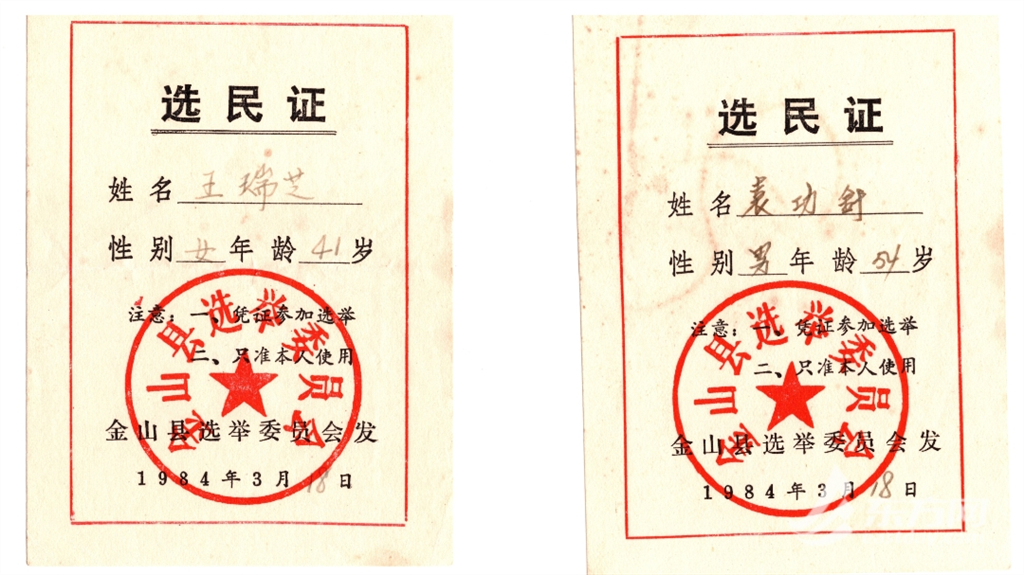 选民证
姓名 王瑞芝
性别 女 年龄 41 岁
注意：一、凭证参加选举
二、只准本人使用
金山县选举委员会发
1984年3月18日
金山县选举委员会
选民证
姓名 袁功针
性别 男 年龄 54 岁
注意：一、凭证参加选举
二、只准本人使用
金山县选举委员会发
1984年3月18日
金山县选举委员会
东方网